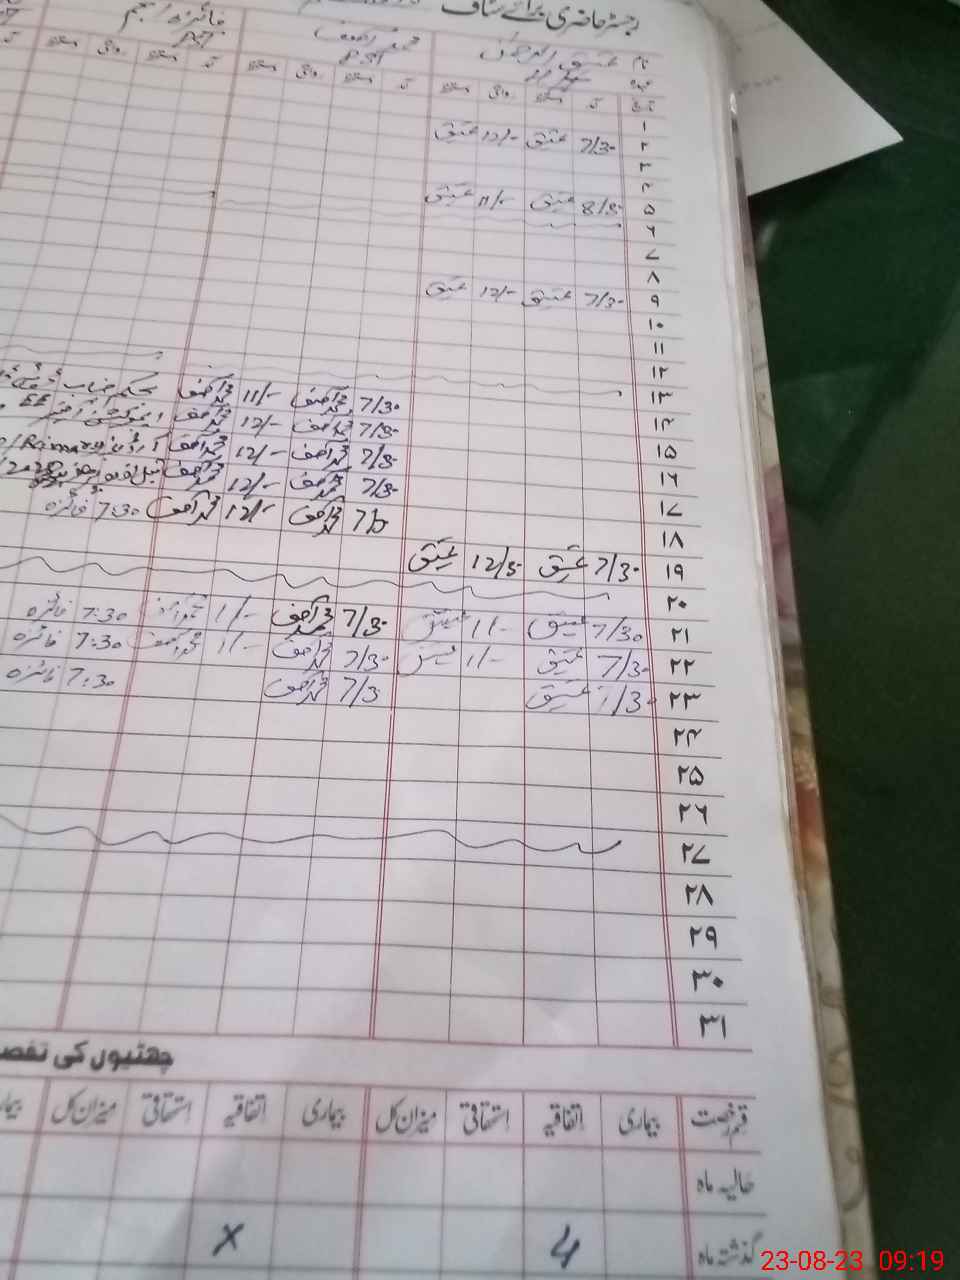 رجسٹر حاضری برائے سٹاف
نام عتیق الرحمٰن محمد آصف فائزہ انجم
عہدہ PST PST
تاریخ
۱
۲ 7/30 عتیق 12/- عتیق
۳
۴
۵ 8/30 عتیق 11/- عتیق
۶
۷
۸
۹ 7/30 عتیق 12/- عتیق
۱۰
۱۱
۱۲
۱۳ 7/30 محمد آصف 11/- محمد آصف
۱۴ 7/30 محمد آصف 12/- محمد آصف
۱۵ 7/30 محمد آصف 12/- محمد آصف
۱۶ 7/30 محمد آصف 12/- محمد آصف
۱۷ 7/30 محمد آصف 12/- محمد آصف 7:30 فائزہ
۱۸
۱۹ 7/30 عتیق 12/30 عتیق
۲۰
۲۱ 7/30 عتیق 1/- عتیق 7/30 محمد آصف 1/- محمد آصف 7:30 فائزہ
۲۲ 7/30 عتیق 1/- عتیق 7/30 محمد آصف 1/- محمد آصف 7:30 فائزہ
۲۳ 7/30 عتیق 7/3 محمد آصف 7:30 فائزہ
۲۴
۲۵
۲۶
۲۷
۲۸
۲۹
۳۰
۳۱
چھٹیوں کی تفصیل
قسم رخصت بیماری اتفاقیہ استحقاقی میزان کل بیماری اتفاقیہ استحقاقی میزان کل
حالیہ ماہ
گذشتہ ماہ 4 x
23-08-23 09:19